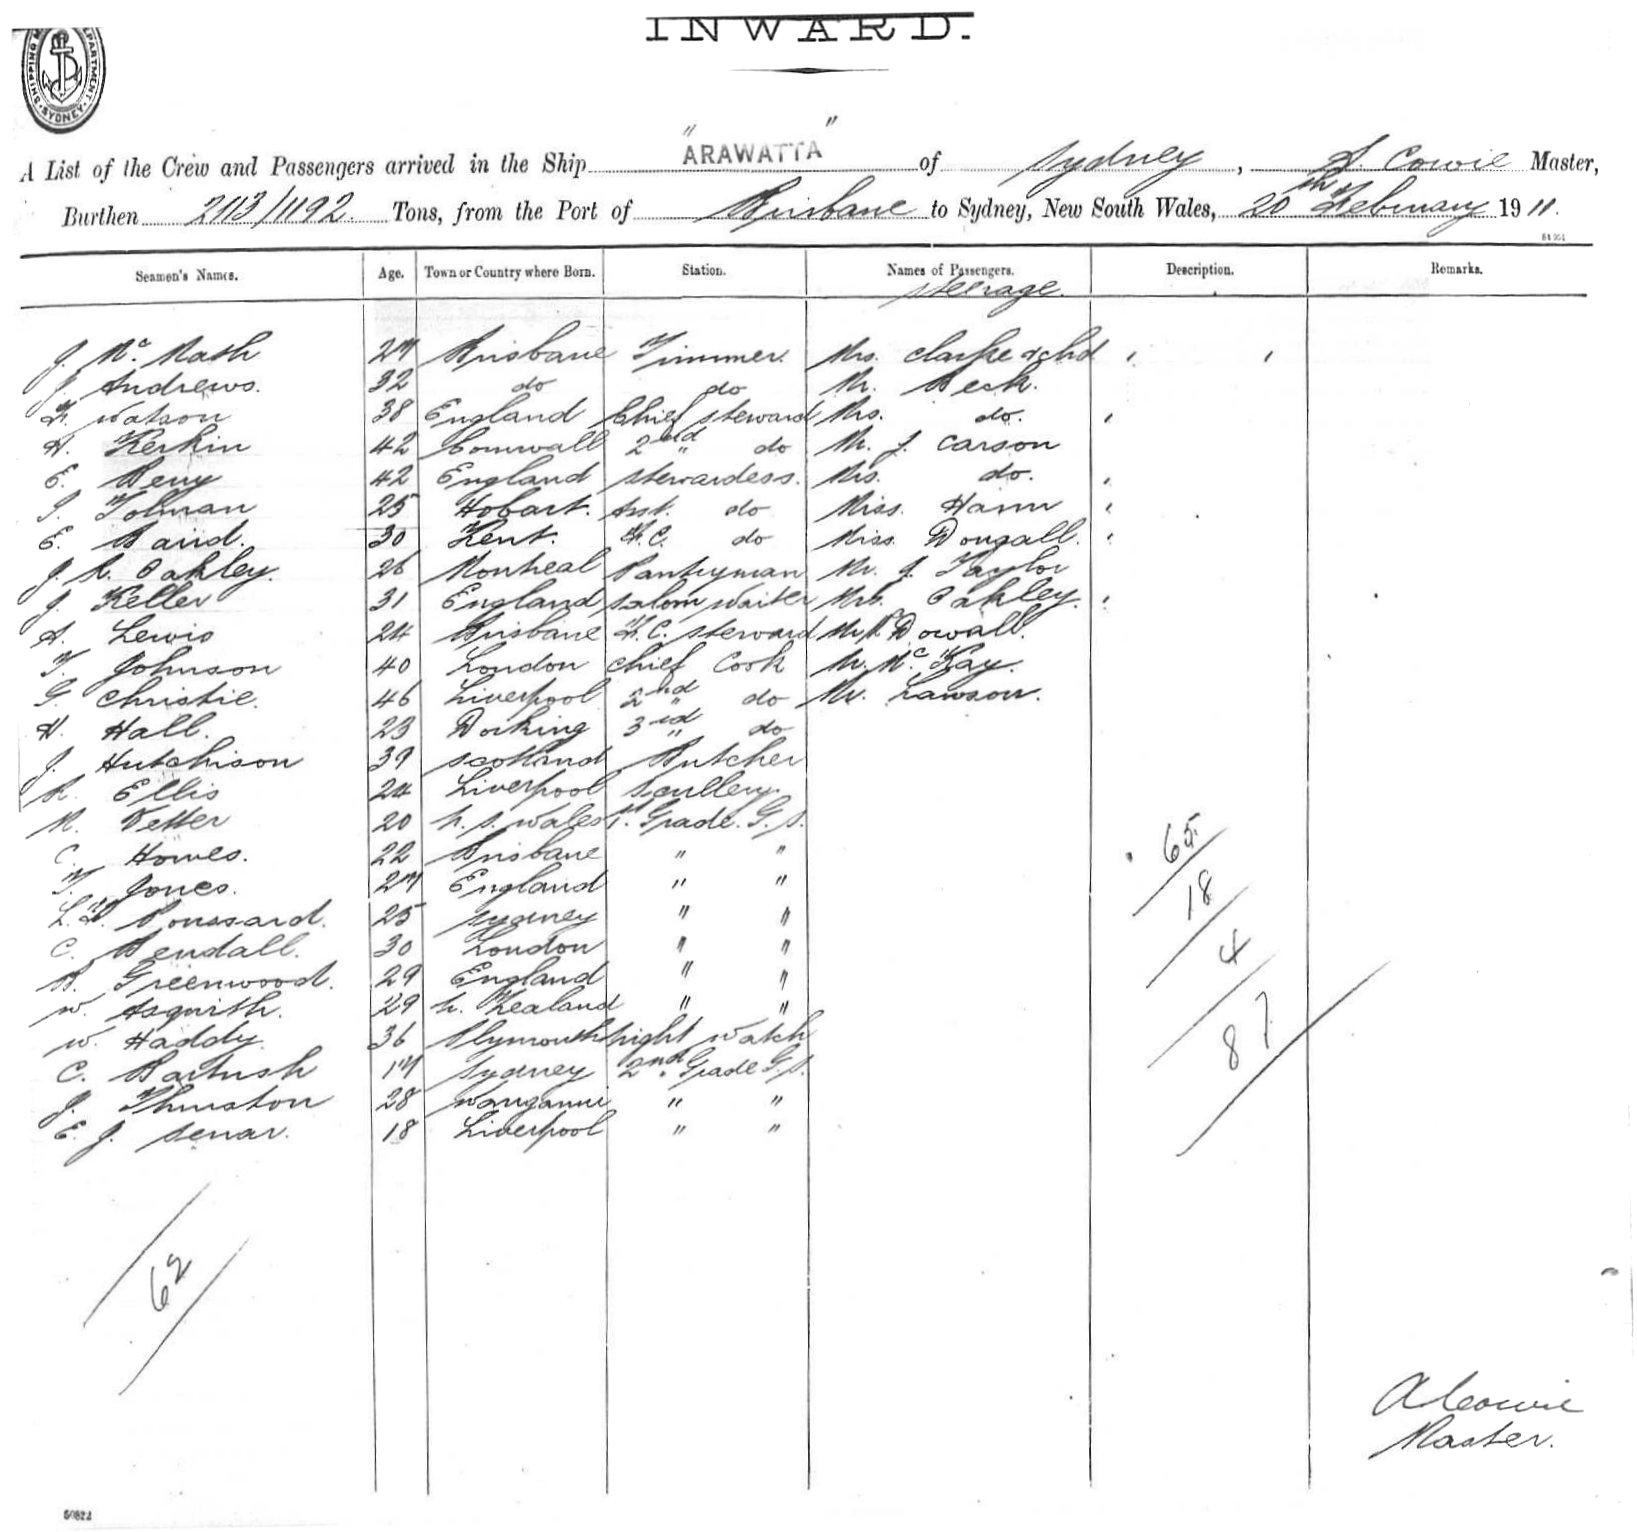 INWARD.
SHIPPING DEPARTMENT SYDNEY
A List of the Crew and Passengers arrived in the Ship "ARAWATTA" of Sydney, A. Cowie Master,
Burthen 2113/1192 Tons, from the Port of Brisbane to Sydney, New South Wales, 20th February 1911.
Seamen's Names. Age. Town or Country where Born. Station. Names of Passengers. Description. Remarks.
Steerage.
J. Mc Nash 27 Brisbane Trimmer. Mrs. Clarke & chd
J. Andrews. 32 do do Mr. Beck.
F. Watson 38 England Chief Steward Mrs. do.
A. Kerkin 42 Cornwall 2nd " do Mr. J. Carson
E. Berry 42 England Stewardess. Mrs. do.
Tolman 25 Hobart. Asst. do Miss. Hann
E. Baird. 30 Kent. F.C. do Miss. Dougall.
J. R. Oakley. 26 Montreal Pantryman Mr. J. Taylor
J. Keller 31 England Saloon Waiter Mrs. Oakley.
A. Lewis 24 Brisbane F.C. Steward Dowall.
T. Johnson 40 London Chief Cook Mr. McKay.
G. Christie. 46 Liverpool 2nd " do Mr. Lawson.
H. Hall. 23 Dorking 3rd " do
J. Hutchison 39 Scotland Butcher
R. Ellis 24 Liverpool Scullery.
R. Vetter 20 N. S. Wales 1st Grade. G.S.
C. Howes. 22 Brisbane " "
T. Jones. 27 England " "
Poussard. 25 Sydney " "
C. Bendall. 30 London " "
B. Greenwood. 29 England " "
W. Asquith. 29 N. Zealand " "
W. Haddy. 36 Plymouth Night Watch
C. Bartush 17 Sydney 2nd Grade G.S.
J. Thurston 28 Wanganui " "
E. J. Senar. 18 Liverpool " "
65
18
4
87
62
A Cowie
Master.
50822